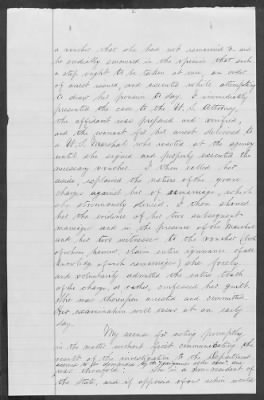 a voucher that she had not remarried &
he cordially concurred in the opinion that such
a step ought to be taken at once, an order
of arrest issued, and executed while attempting
to draw her pension to day. I immediately
presented the case to the U.S. Attorney,
the affidavit was prepared and verified,
and the warrant for her arrest delivered to
a U.S. Marshal who waited at the agency
until she signed and properly executed the
necessary voucher. I then called her
aside, explained the nature of the grave
charge against her of remarriage, which
she strenuously denied. I then showed
her the evidence of her two subsequent
marriages and in the presence of the Marshal
and her two witnesses to the voucher (both
of whom claim entire ignorance of all
knowledge of such remarriage) she freely
and voluntarily admitted the entire truth
of the charge, or rather, confessed her guilt.
She was thereupon arrested and committed.
Her examination will occur at an early
day.
My reason for acting promptly
in the matter without first communicating the
result of the investigation to the Department
seemed to be demanded by the
She is a non resident of
the State, and if apprised of our action would